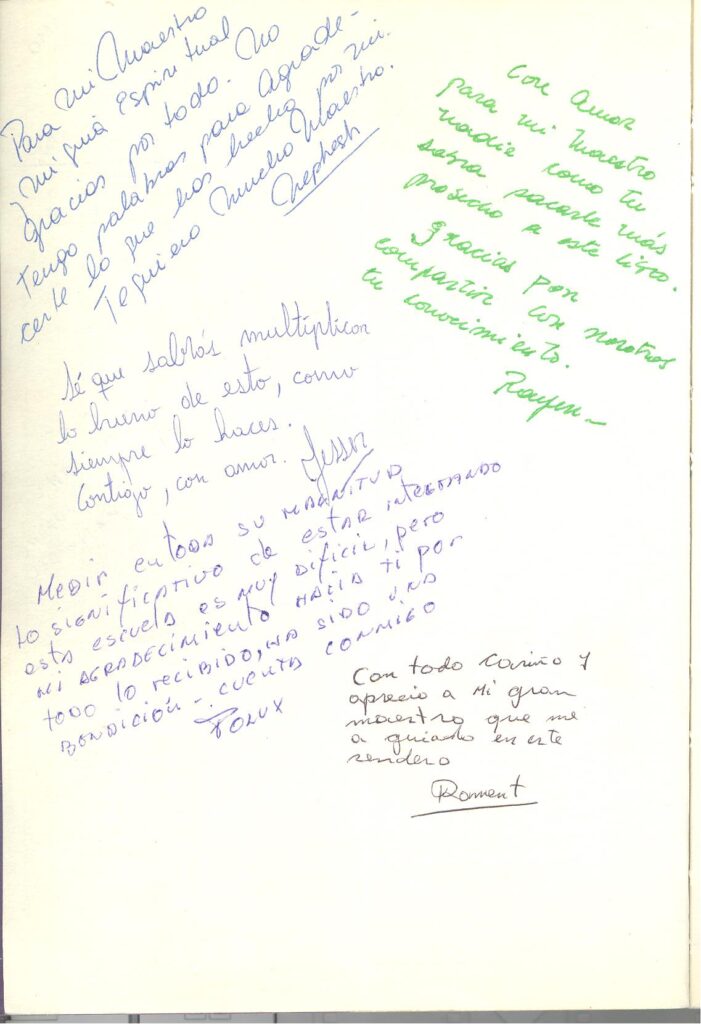 Para mi Maestro
mi guía espiritual
Gracias por todo. No
Tengo palabras para Agrade-
certe lo que has hecho por mi.
Te quiero mucho Maestro.
Nephesh
Con Amor
para mi maestro
nadie como tu
sabra sacarle más
provecho a este libro.
Gracias por
compartir con nosotros
tu conocimiento.
Rayen
Sé que sabrás multiplicar
lo bueno de esto, como
siempre lo haces.
Contigo, con amor.
MEDIR EN TODA SU MAGNITUD
LO SIGNIFICATIVO de estar integrando
esta escuela es MUY DIFICIL, pero
MI AGRADECIMIENTO HACIA ti por
todo lo recibido, HA SIDO UNA
BONDICIÓN - CUENTA CONMIGO
POLUX
Con todo cariño y
aprecio a Mi gran
maestro que me
a guiado en este
sendero
Roment